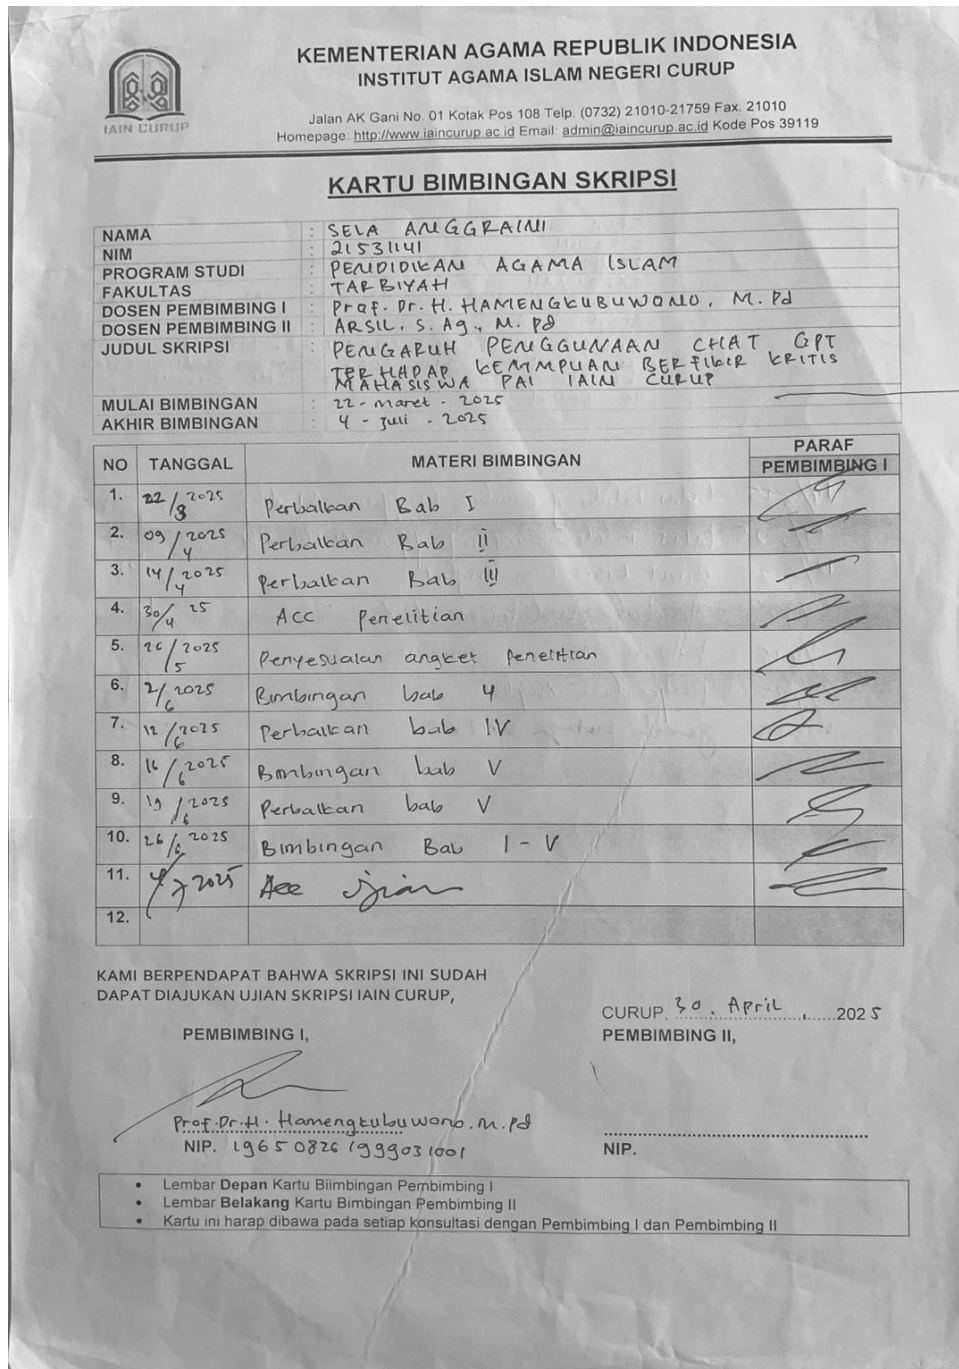 KEMENTERIAN AGAMA REPUBLIK INDONESIA
INSTITUT AGAMA ISLAM NEGERI CURUP
IAIN CURUP
Jalan AK Gani No. 01 Kotak Pos 108 Telp. (0732) 21010-21759 Fax. 21010
Homepage: http://www.iaincurup.ac.id Email: admin@iaincurup.ac.id Kode Pos 39119
KARTU BIMBINGAN SKRIPSI
NAMA : SELA ANGGRAINI
NIM : 21531141
PROGRAM STUDI : PENDIDIKAN AGAMA ISLAM
FAKULTAS : TARBIYAH
DOSEN PEMBIMBING I : Prof. Dr. H. HAMENGKUBUWONO, M. Pd
DOSEN PEMBIMBING II : ARSIL. S. Ag., M. Pd
JUDUL SKRIPSI : PENGARUH PENGGUNAAN CHAT GPT
TERHADAP KEMPUAN BERFIKIR KRITIS
MAHASISWA PAI IAIN CURUP
MULAI BIMBINGAN : 22 - maret - 2025
AKHIR BIMBINGAN : 4 - Juli - 2025
NO TANGGAL MATERI BIMBINGAN PARAF
PEMBIMBING I
1. 22/3 2025 Perbaikan Bab I
2. 09/4 2025 Perbaikan Bab II
3. 14/4 2025 Perbaikan Bab III
4. 30/4 25 ACC Penelitian
5. 26/5 2025 Penyesuaian angket Penelitian
6. 2/6 2025 Bimbingan bab 4
7. 12/6 2025 Perbaikan bab IV
8. 16/6 2025 Bimbingan bab V
9. 19/6 2025 Perbaikan bab V
10. 26/6 2025 Bimbingan Bab I - V
11. 4/7 2025 Acc ujian
12.
KAMI BERPENDAPAT BAHWA SKRIPSI INI SUDAH
DAPAT DIAJUKAN UJIAN SKRIPSI IAIN CURUP,
CURUP, 30. April 2025
PEMBIMBING I,
PEMBIMBING II,
Prof.Dr.H. Hamengkubuwono.M.Pd
NIP. 19650826 199903 1001
NIP.
• Lembar Depan Kartu Biimbingan Pembimbing I
• Lembar Belakang Kartu Bimbingan Pembimbing II
• Kartu ini harap dibawa pada setiap konsultasi dengan Pembimbing I dan Pembimbing II